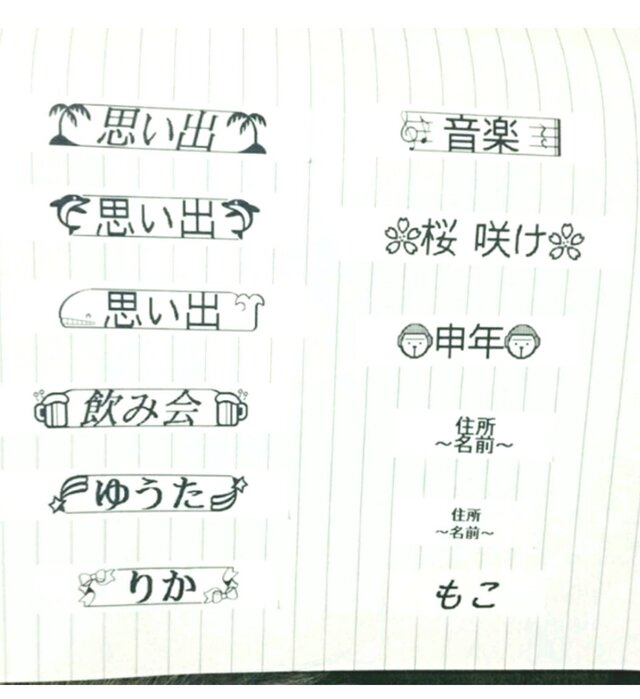 思い出
思い出
思い出
飲み会
ゆうた
りか
音楽
桜 咲け
申年
住所
～名前～
住所
～名前～
もこ